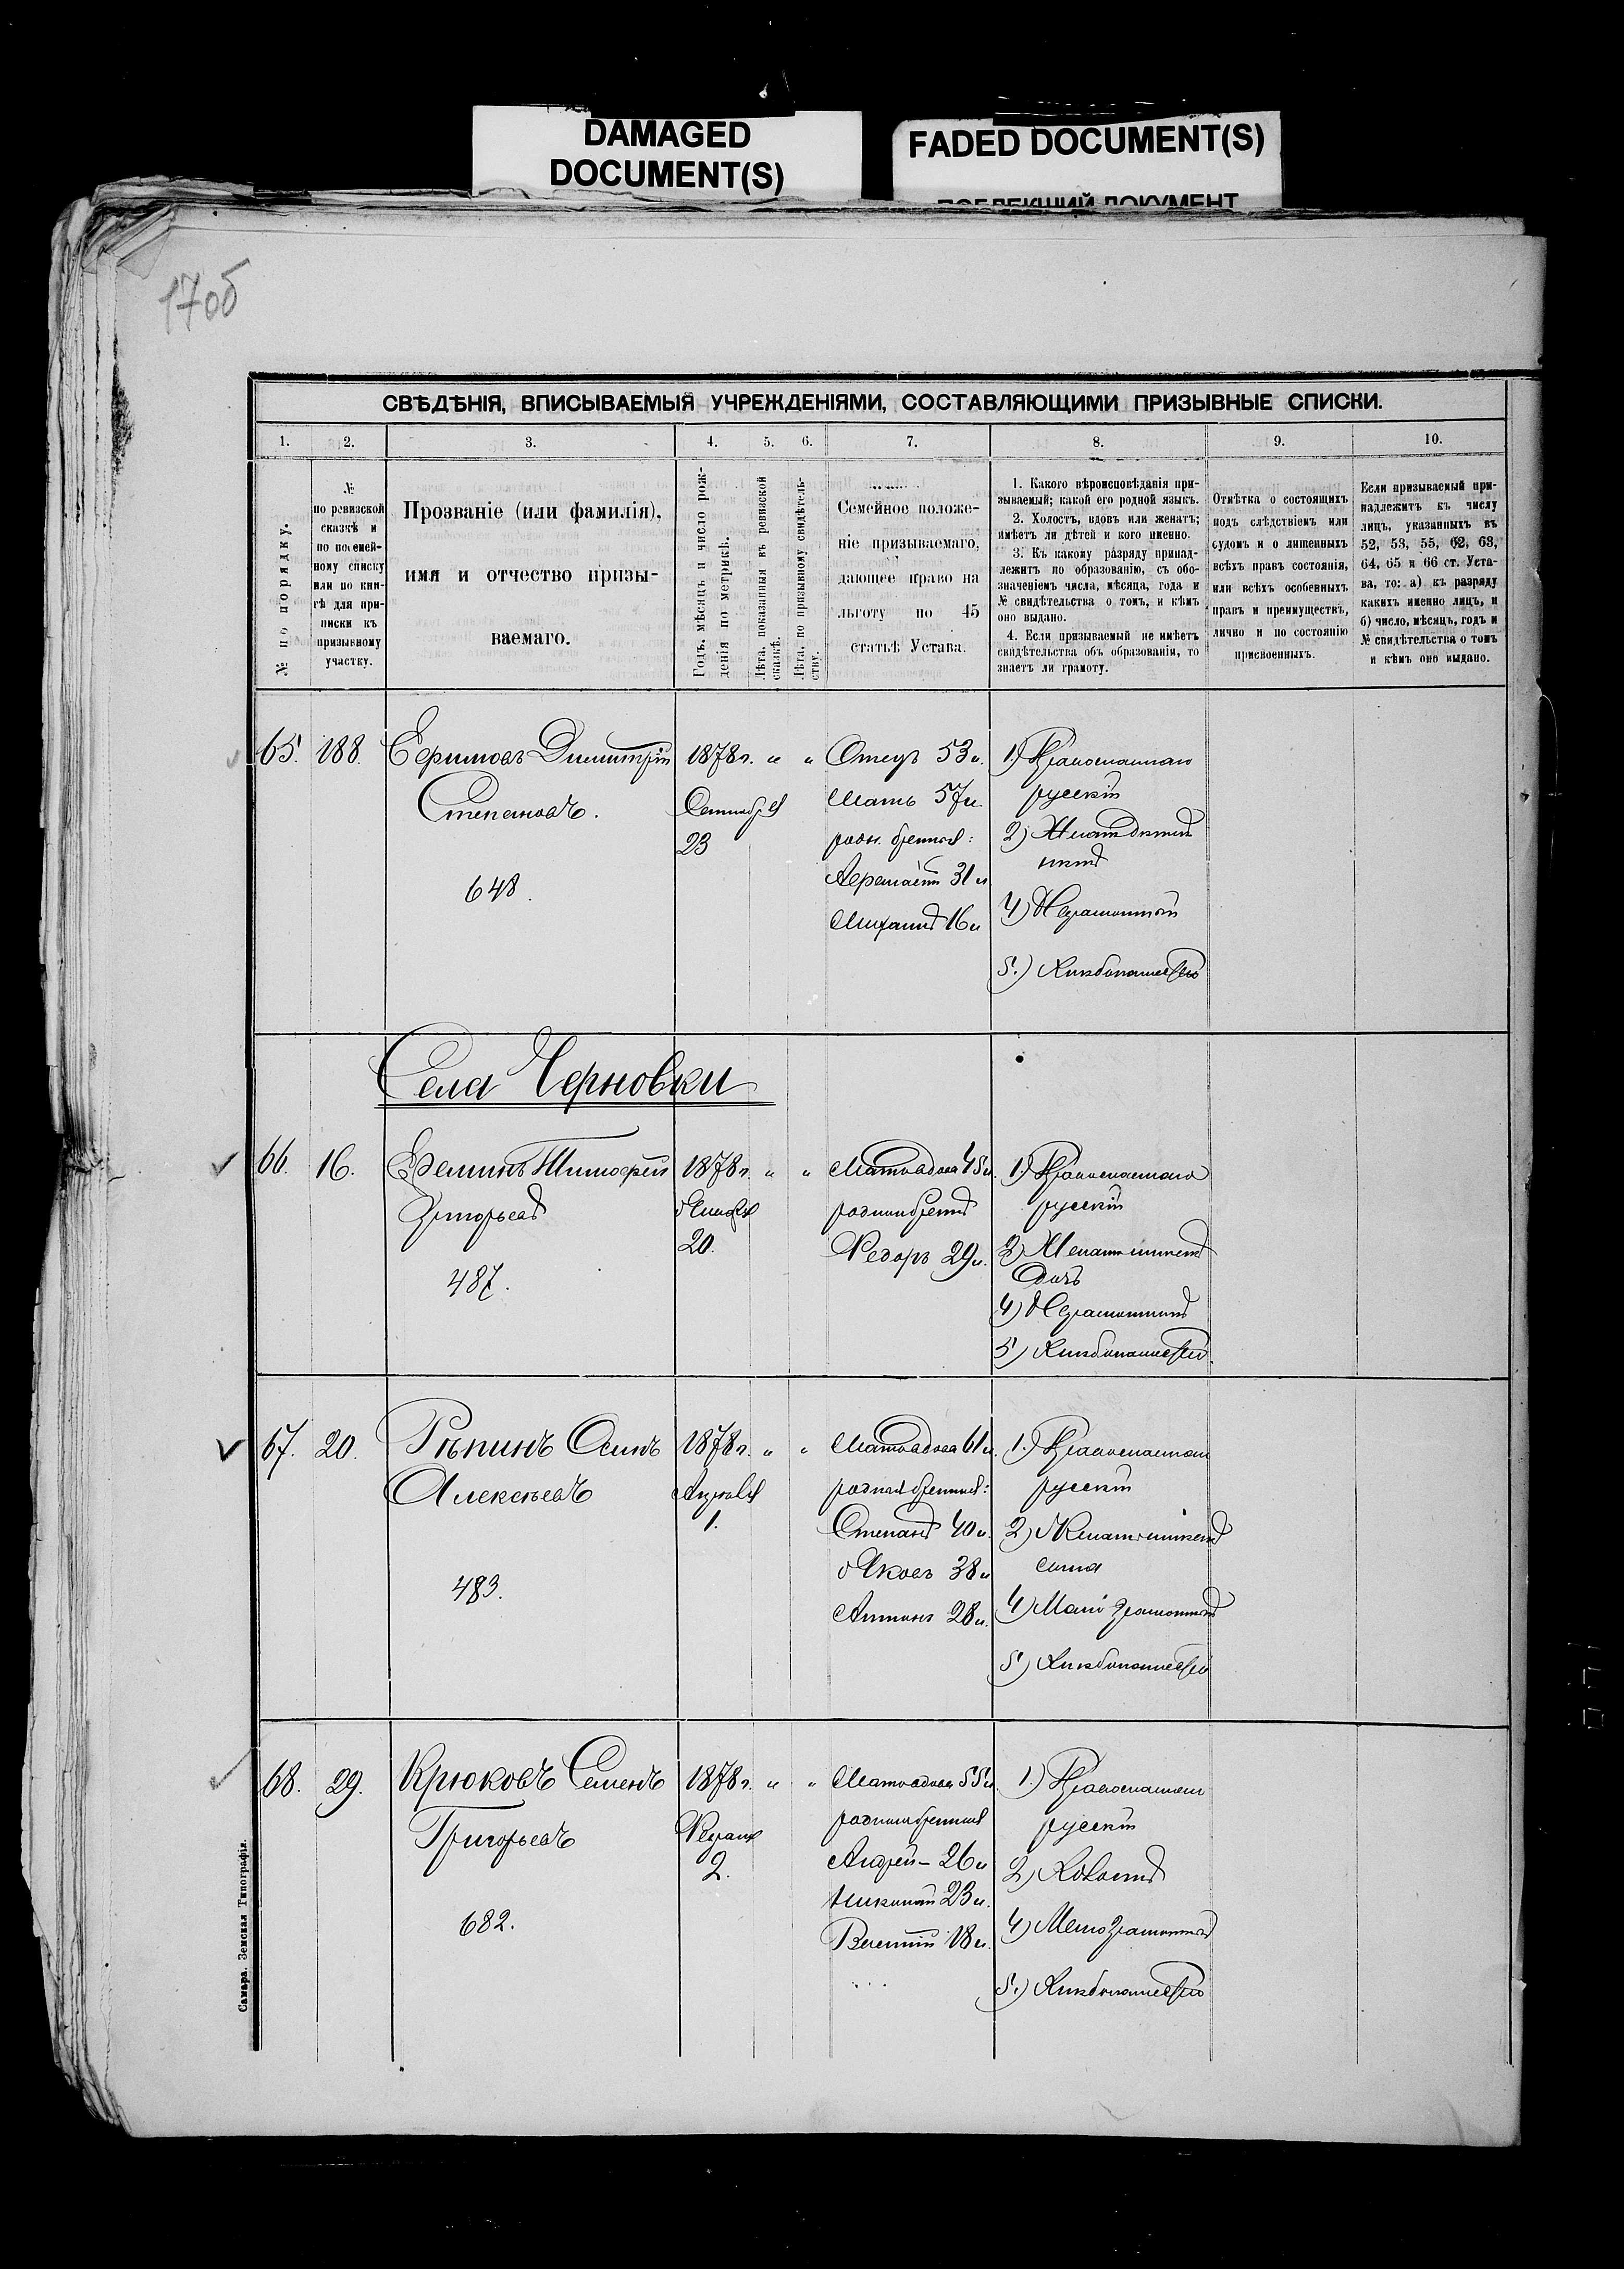 DAMAGED
DOCUMENT(S)
FADED DOCUMENT(S)
ПОБЛЕКШИЙ ДОКУМЕНТ
170б
СВѢДѢНІЯ, ВПИСЫВАЕМЫЯ УЧРЕЖДЕНІЯМИ, СОСТАВЛЯЮЩИМИ ПРИЗЫВНЫЕ СПИСКИ.
1. 2. 3. 4. 5. 6. 7. 8. 9. 10.
№ по порядку.
№
по ревизской
сказкѣ и
по посемей-
ному списку
или по кни-
гѣ для при-
писки къ
призывному
участку.
Прозваніе (или фамилія),
имя и отчество призы-
ваемаго.
Годъ, мѣсяцъ и число рож-
денія по метрикѣ.
Лѣта, показанныя въ ревизской
сказкѣ.
Лѣта, по призывному свидѣтель-
ству.
Семейное положе-
ніе призываемаго,
дающее право на
льготу по 45
статьѣ Устава.
1. Какого вѣроисповѣданія при-
зываемый; какой его родной языкъ.
2. Холостъ, вдовъ или женатъ;
имѣетъ ли дѣтей и кого именно.
3. Къ какому разряду принад-
лежитъ по образованію, съ обо-
значеніемъ числа, мѣсяца, года и
№ свидѣтельства о томъ, и кѣмъ
оно выдано.
4. Если призываемый не имѣетъ
свидѣтельства объ образованіи, то
знаетъ ли грамоту.
Отмѣтка о состоящихъ
подъ слѣдствіемъ или
судомъ и о лишенныхъ
всѣхъ правъ состоянія,
или всѣхъ особенныхъ
правъ и преимуществъ,
лично и по состоянію
присвоенныхъ.
Если призываемый при-
надлежитъ къ числу
лицъ, указанныхъ въ
52, 53, 55, 62, 63,
64, 65 и 66 ст. Уста-
ва, то: а) къ разряду
какихъ именно лицъ, и
б) число, мѣсяцъ, годъ и
№ свидѣтельства о томъ
и кѣмъ оно выдано.
65. 188. Димитрій
Степановъ.
648.
1878 г. " "
Сентября
23
Отецъ 53 л.
Мать 57 л.
родн. братья:
31 л.
Михаилъ 16 л.
1) Православнаго
русскій
2)
4) Неграмотный
5.) Хлѣбопашество
Села Черновки
66. 16. Тимофей
Григорьевъ
487.
1878 г. " "
Января
20.
Мать вдова 45 л.
родной братъ
Федоръ 29 л.
1) Православнаго
русскій
2) Женатъ имѣетъ
дочь
4) Неграмотный
5) Хлѣбопашество.
67. 20. Рѣпинъ Осипъ
Алексѣевъ
483.
1878 г. " "
Апрѣля
1.
Мать вдова 61 л.
родные братья:
Степанъ 40 л.
Яковъ 38 л.
Антонъ 28 л.
1.) Православнаго
русскій
2) Женатъ имѣетъ
сына
4) Мало грамотный
5) Хлѣбопашество
68. 29. Крюковъ Семенъ
Григорьевъ
682.
1878 г. " "
Февраля
2.
Мать вдова 55 л.
родные братья
Андрей – 26 л.
Николай 23 л.
18 л.
1.) Православнаго
русскій
2) Холостъ
4) Мало грамотный
5.) Хлѣбопашество
Самара. Земская Типографія.